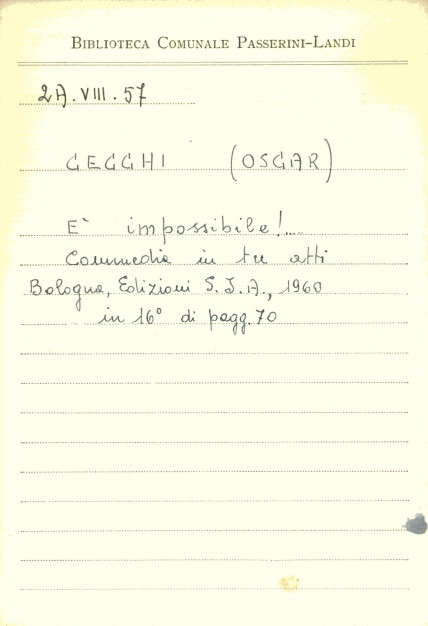 BIBLIOTECA COMUNALE PASSERINI-LANDI
2A.VIII.57
CECCHI (OSCAR)
È impossibile!...
Commedia in tre atti
Bologna, Edizioni S.I.A., 1960
in 16° di pagg. 70